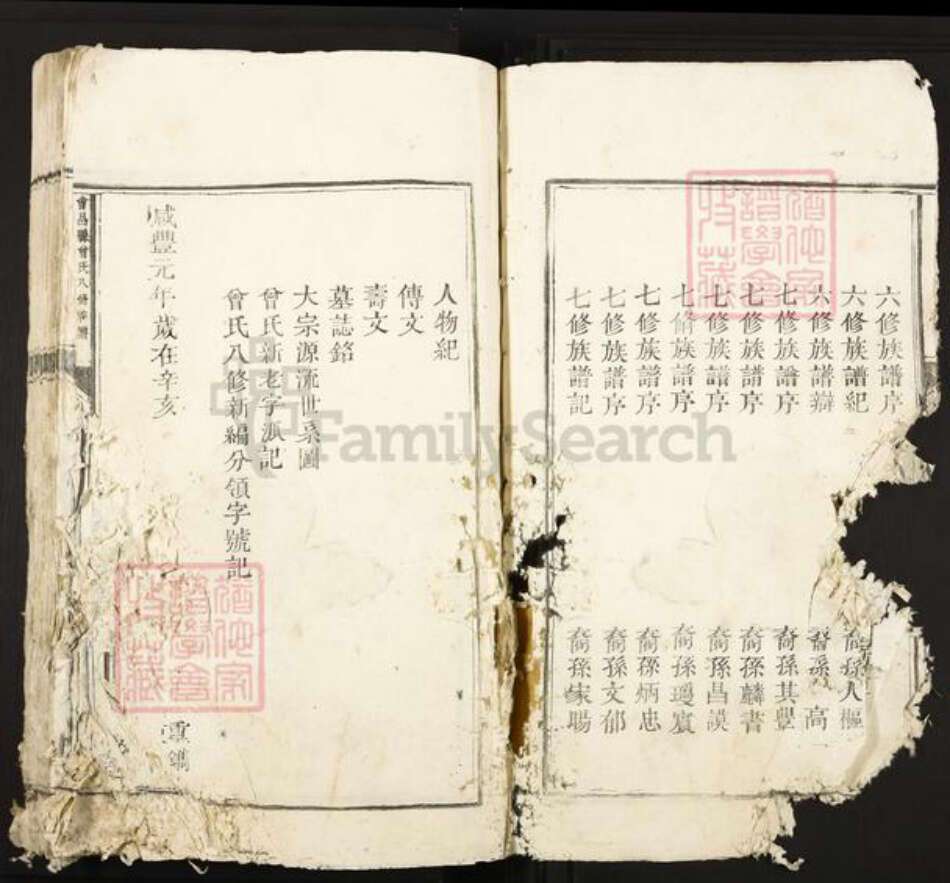 六修族譜序
六修族譜紀 裔孫人樞
六修族譜辯 裔孫 高
七修族譜序 裔孫其豐
七修族譜序 裔孫麟書
七修族譜序 裔孫昌謨
七脩族譜序 裔孫
七修族譜序 裔孫炳忠
七修族譜序 裔孫文郁
七修族譜記 裔孫家賜
人物紀
傳文
壽文
墓誌銘
大宗源流世系圖
曾氏新老字派記
曾氏八修新編分領字號記
咸豐元年歲在辛亥 鐫
會昌縣曾氏八修族譜
FamilySearch